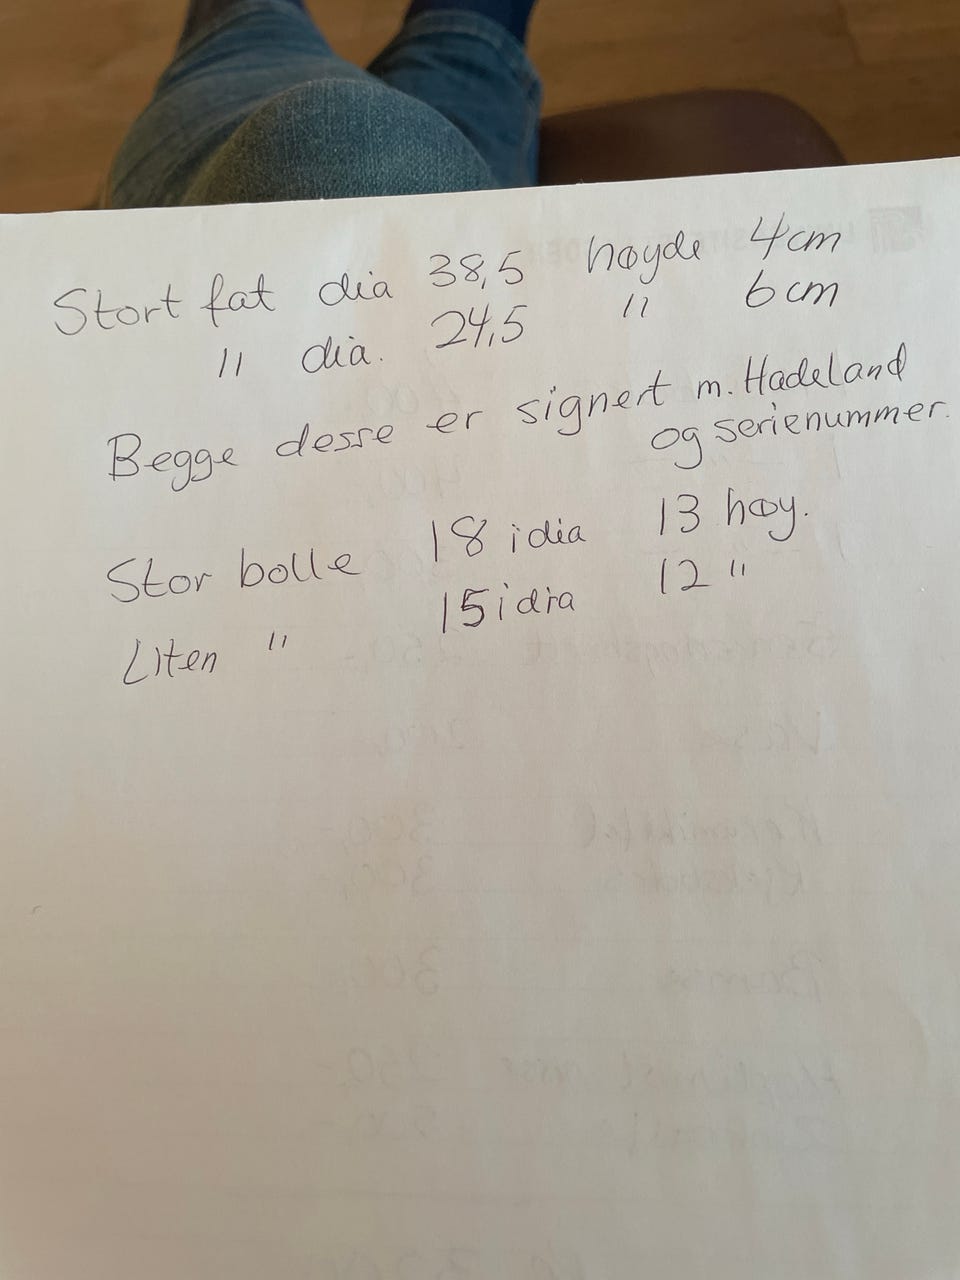 Stort fat dia 38,5 høyde 4cm
" dia. 24,5 " 6cm
Begge desse er signert m. Hadeland
og serienummer.
Stor bolle 18 i dia 13 høy.
Liten " 15 i dia 12 "